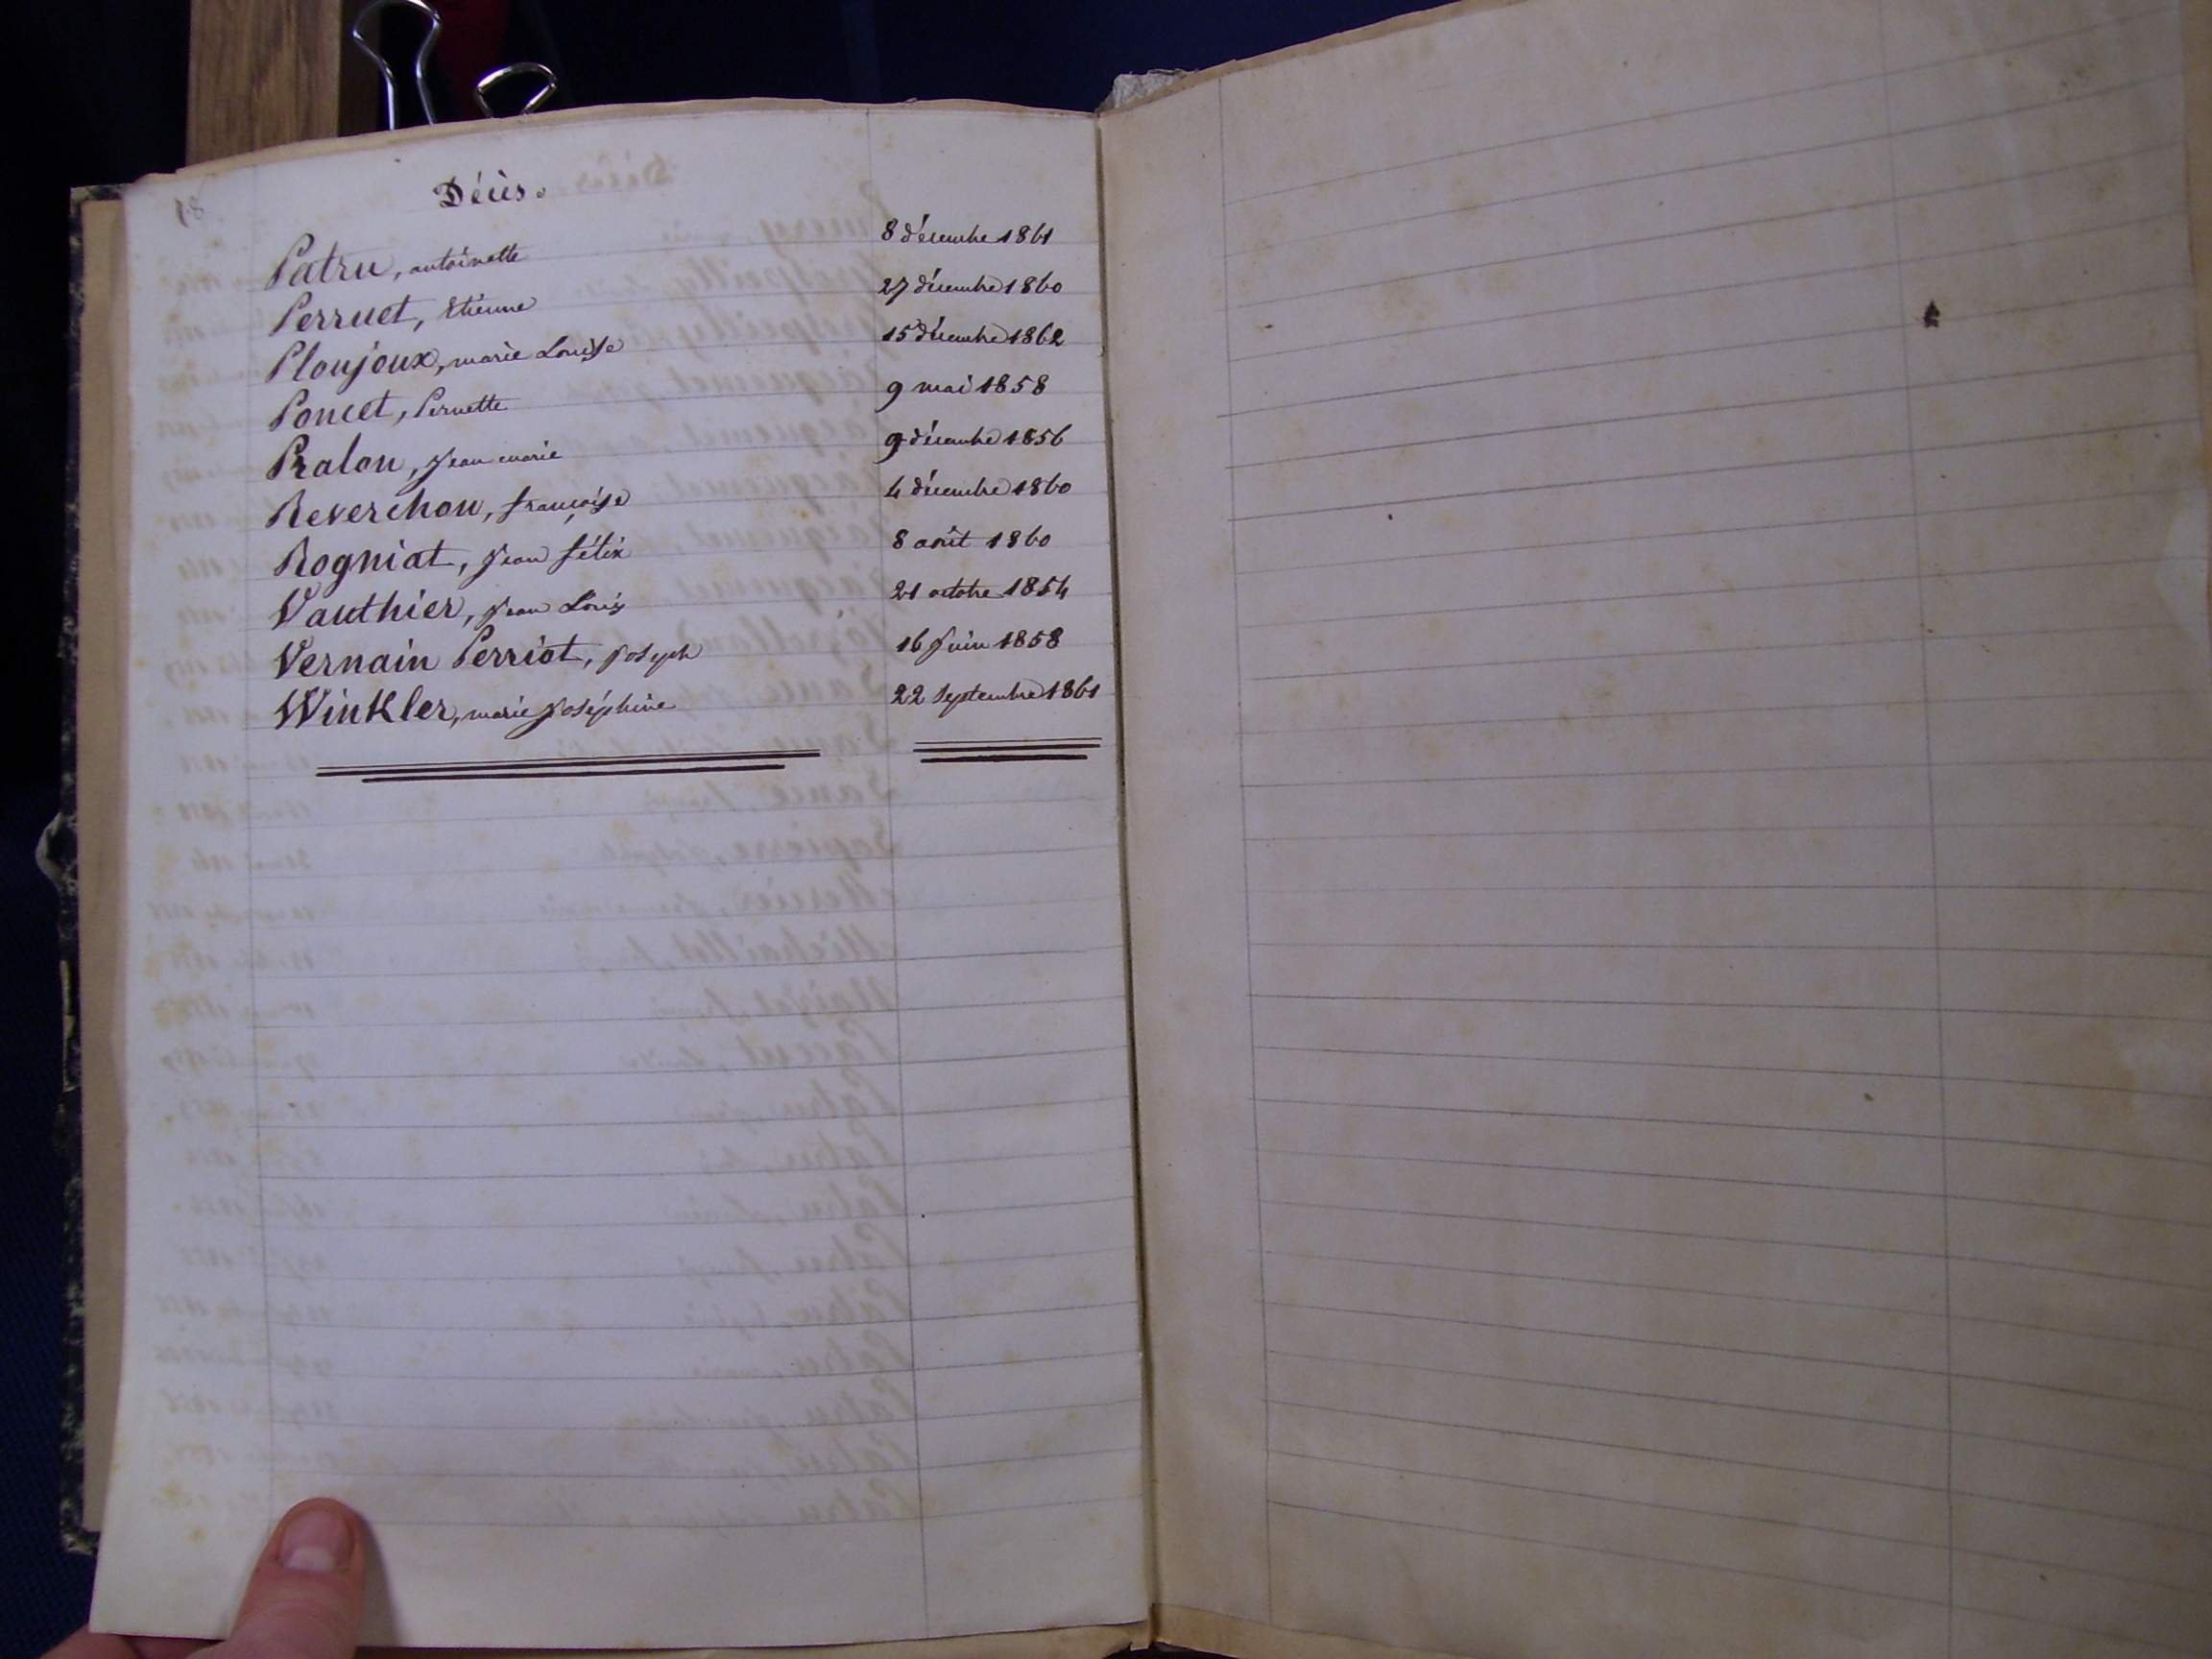 18
Décès.
Patru, antoinette 8 décembre 1861
Perruet, Etienne 27 décembre 1860
Ploujoux, marie Louise 15 décembre 1862
Poncet, Pernette 9 mai 1858
Pralon, Jean marie 9 décembre 1856
Reverchon, françoise 4 décembre 1860
Rogniat, Jean félix 8 août 1860
Vauthier, Jean Louis 21 octobre 1854
Vernain Perriot, Joseph 16 Juin 1858
Winkler, marie Joséphine 22 Septembre 1861